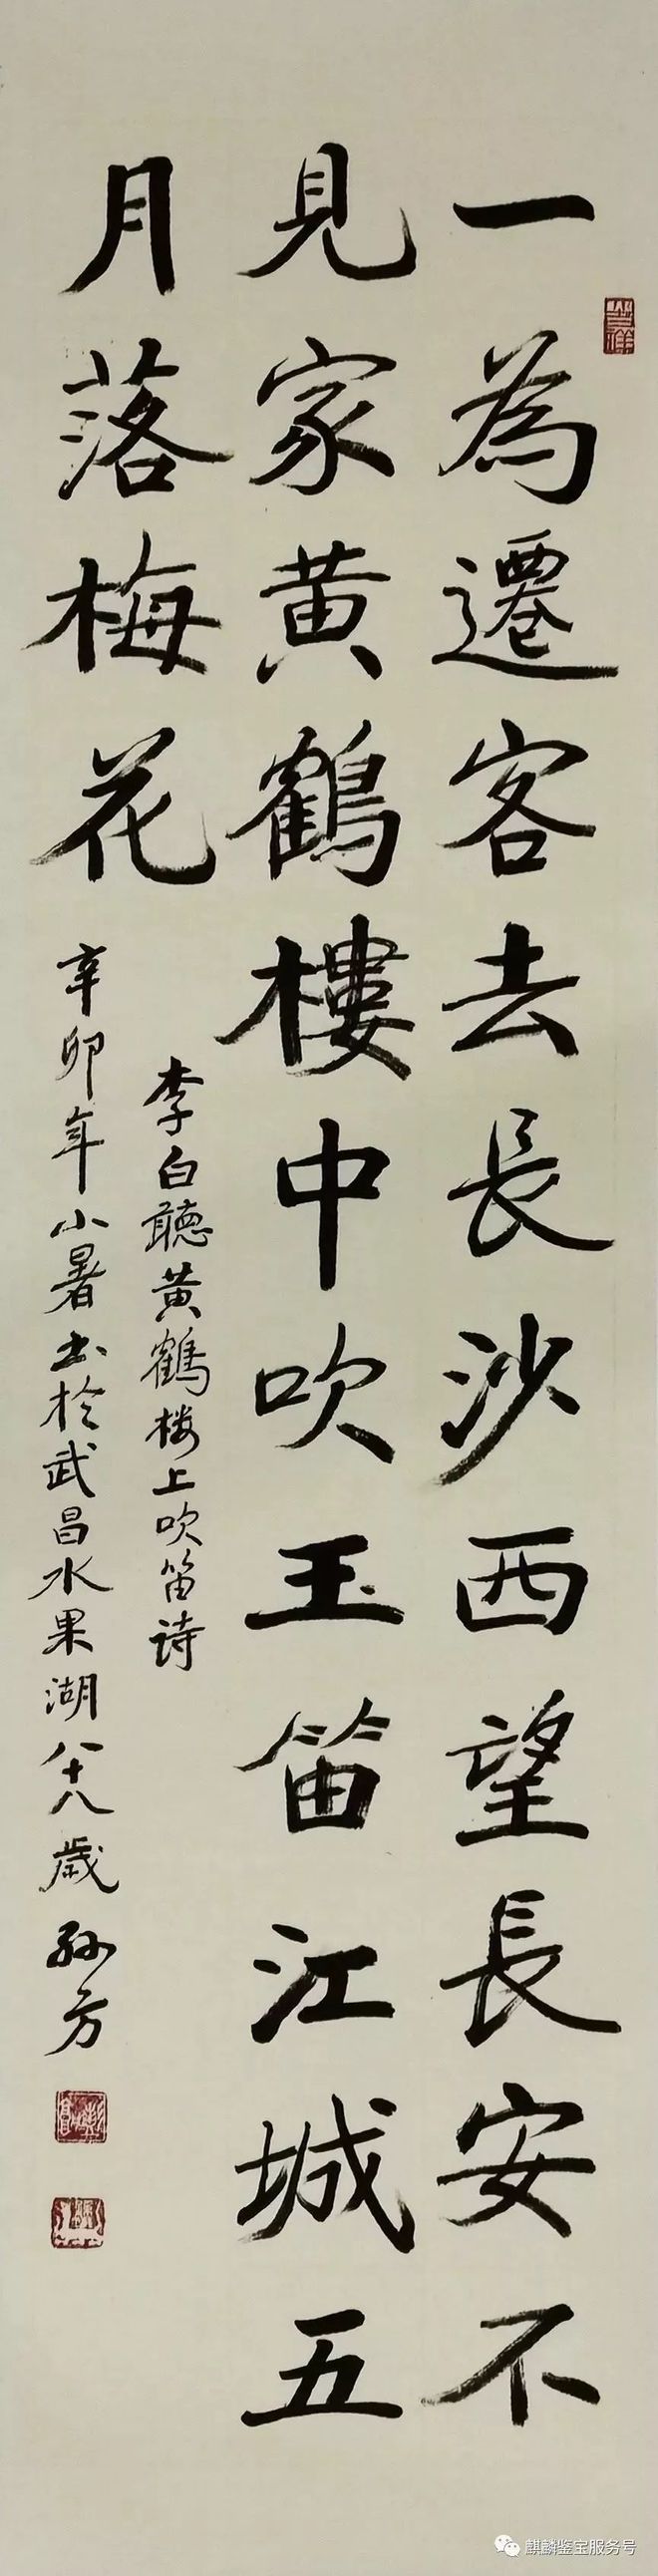 一為遷客去長沙西望長安不
見家黄鶴樓中吹玉笛江城五
月落梅花
李白聽黄鶴楼上吹笛诗
辛卯年小暑书於武昌水果湖八十八歲孙方
麒麟鉴宝服务号